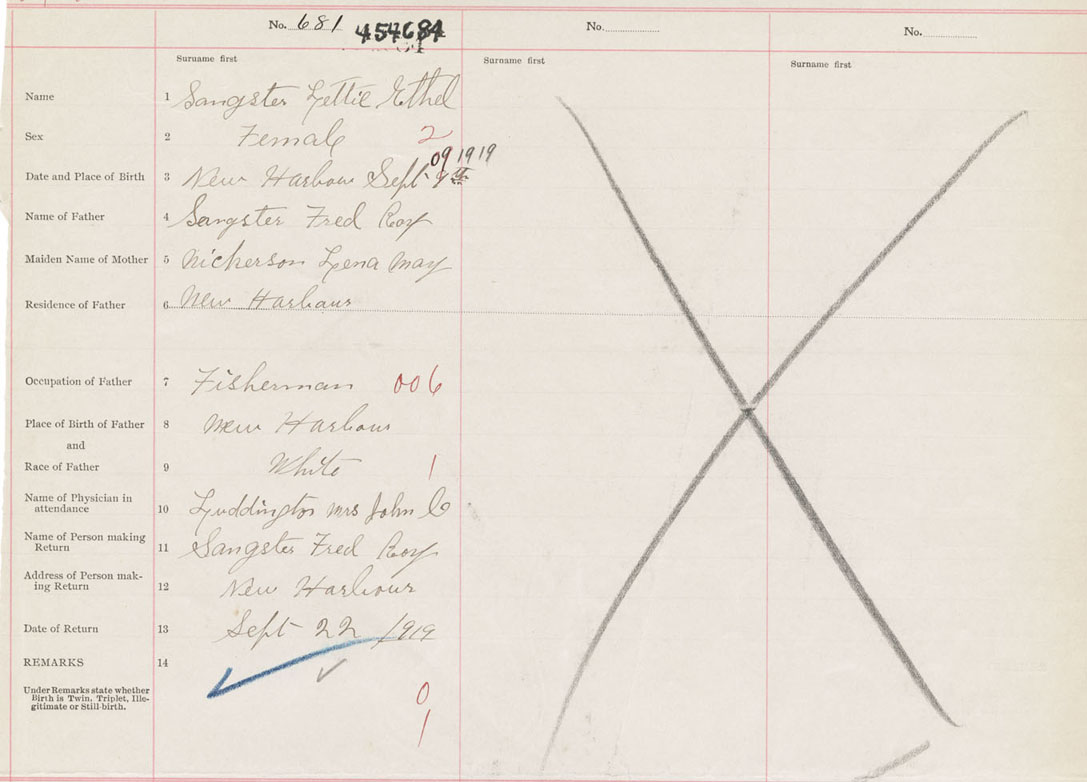 No. 681 454684 No. No.
Surname first Surname first Surname first
Name 1 Sangster Lettie Ethel
Sex 2 Female 2
Date and Place of Birth 3 New Harbour Sept 09 1919
Name of Father 4 Sangster Fred Roy
Maiden Name of Mother 5 Nickerson Lena May
Residence of Father 6 New Harbour
Occupation of Father 7 Fisherman 006
Place of Birth of Father 8 New Harbour
and
Race of Father 9 White 1
Name of Physician in
attendance 10 Luddington Mrs John C
Name of Person making
Return 11 Sangster Fred Roy
Address of Person mak-
ing Return 12 New Harbour
Date of Return 13 Sept 22 1919
REMARKS 14
Under Remarks state whether
Birth is Twin, Triplet, Ille-
gitimate or Still-birth.
0
1